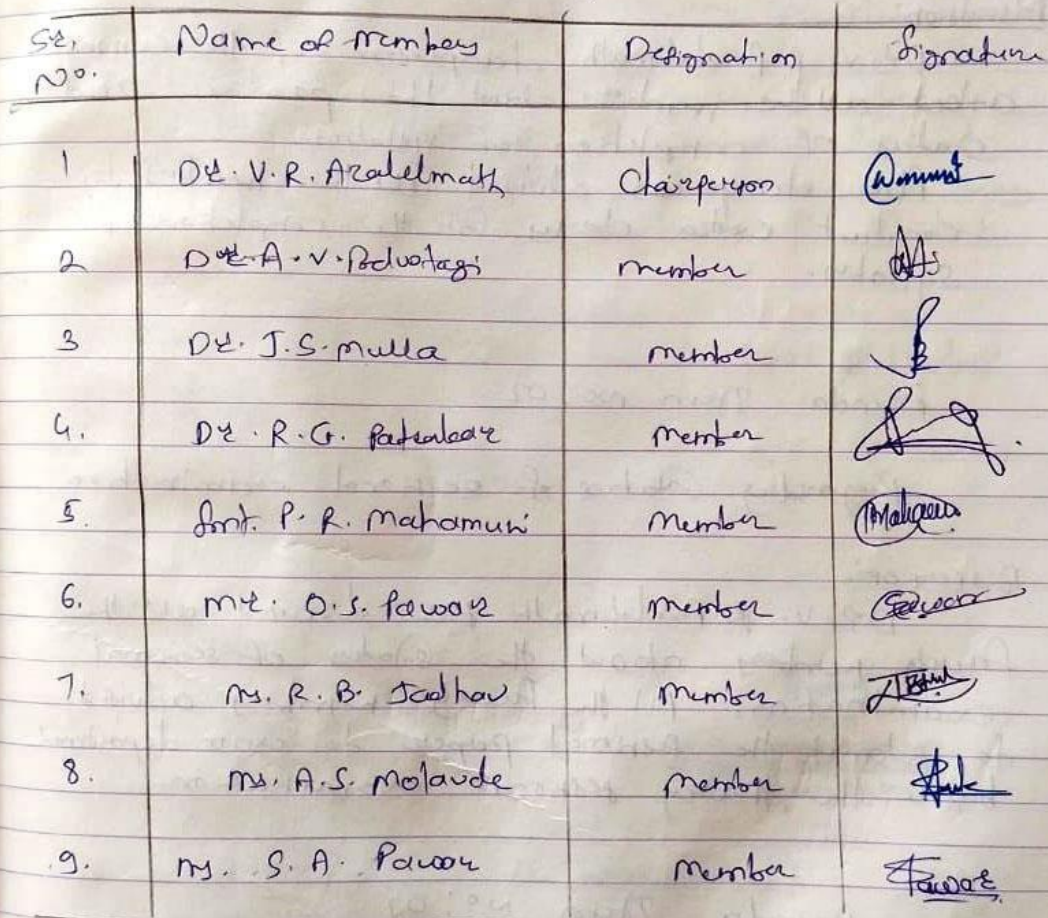 Sr. No. Name of members Designation Signature
1 Dr. V. R. Aralelmath Chairperson
2 Dr. A. V. Padvatagi member
3 Dr. J. S. mulla member
4. Dr. R. G. member
5. Smt. P. R. Mahamuni Member
6. Mr. O. S. Pawar member
7. Ms. R. B. Jadhav Member
8. Ms. A. S. Molavde Member
9. Ms. S. A. Pawar Member Pawar